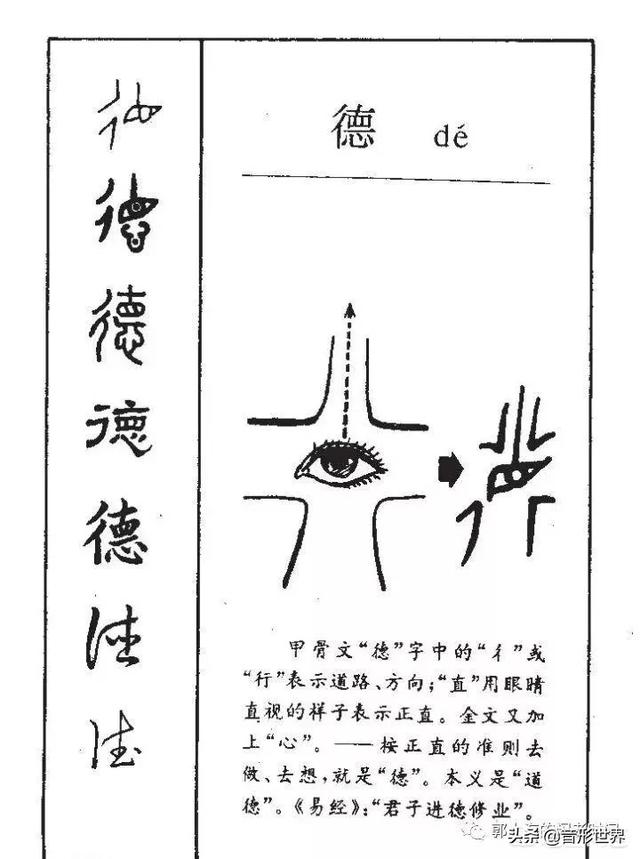 德 dé
德
德
德
德
德
德
德
甲骨文“德”字中的“彳”或
“行”表示道路、方向；“直”用眼睛
直视的样子表示正直。金文又加
上“心”。——按正直的准则去
做、去想，就是“德”。本义是“道
德”。《易经》：“君子进德修业”。
头条 @音形世界